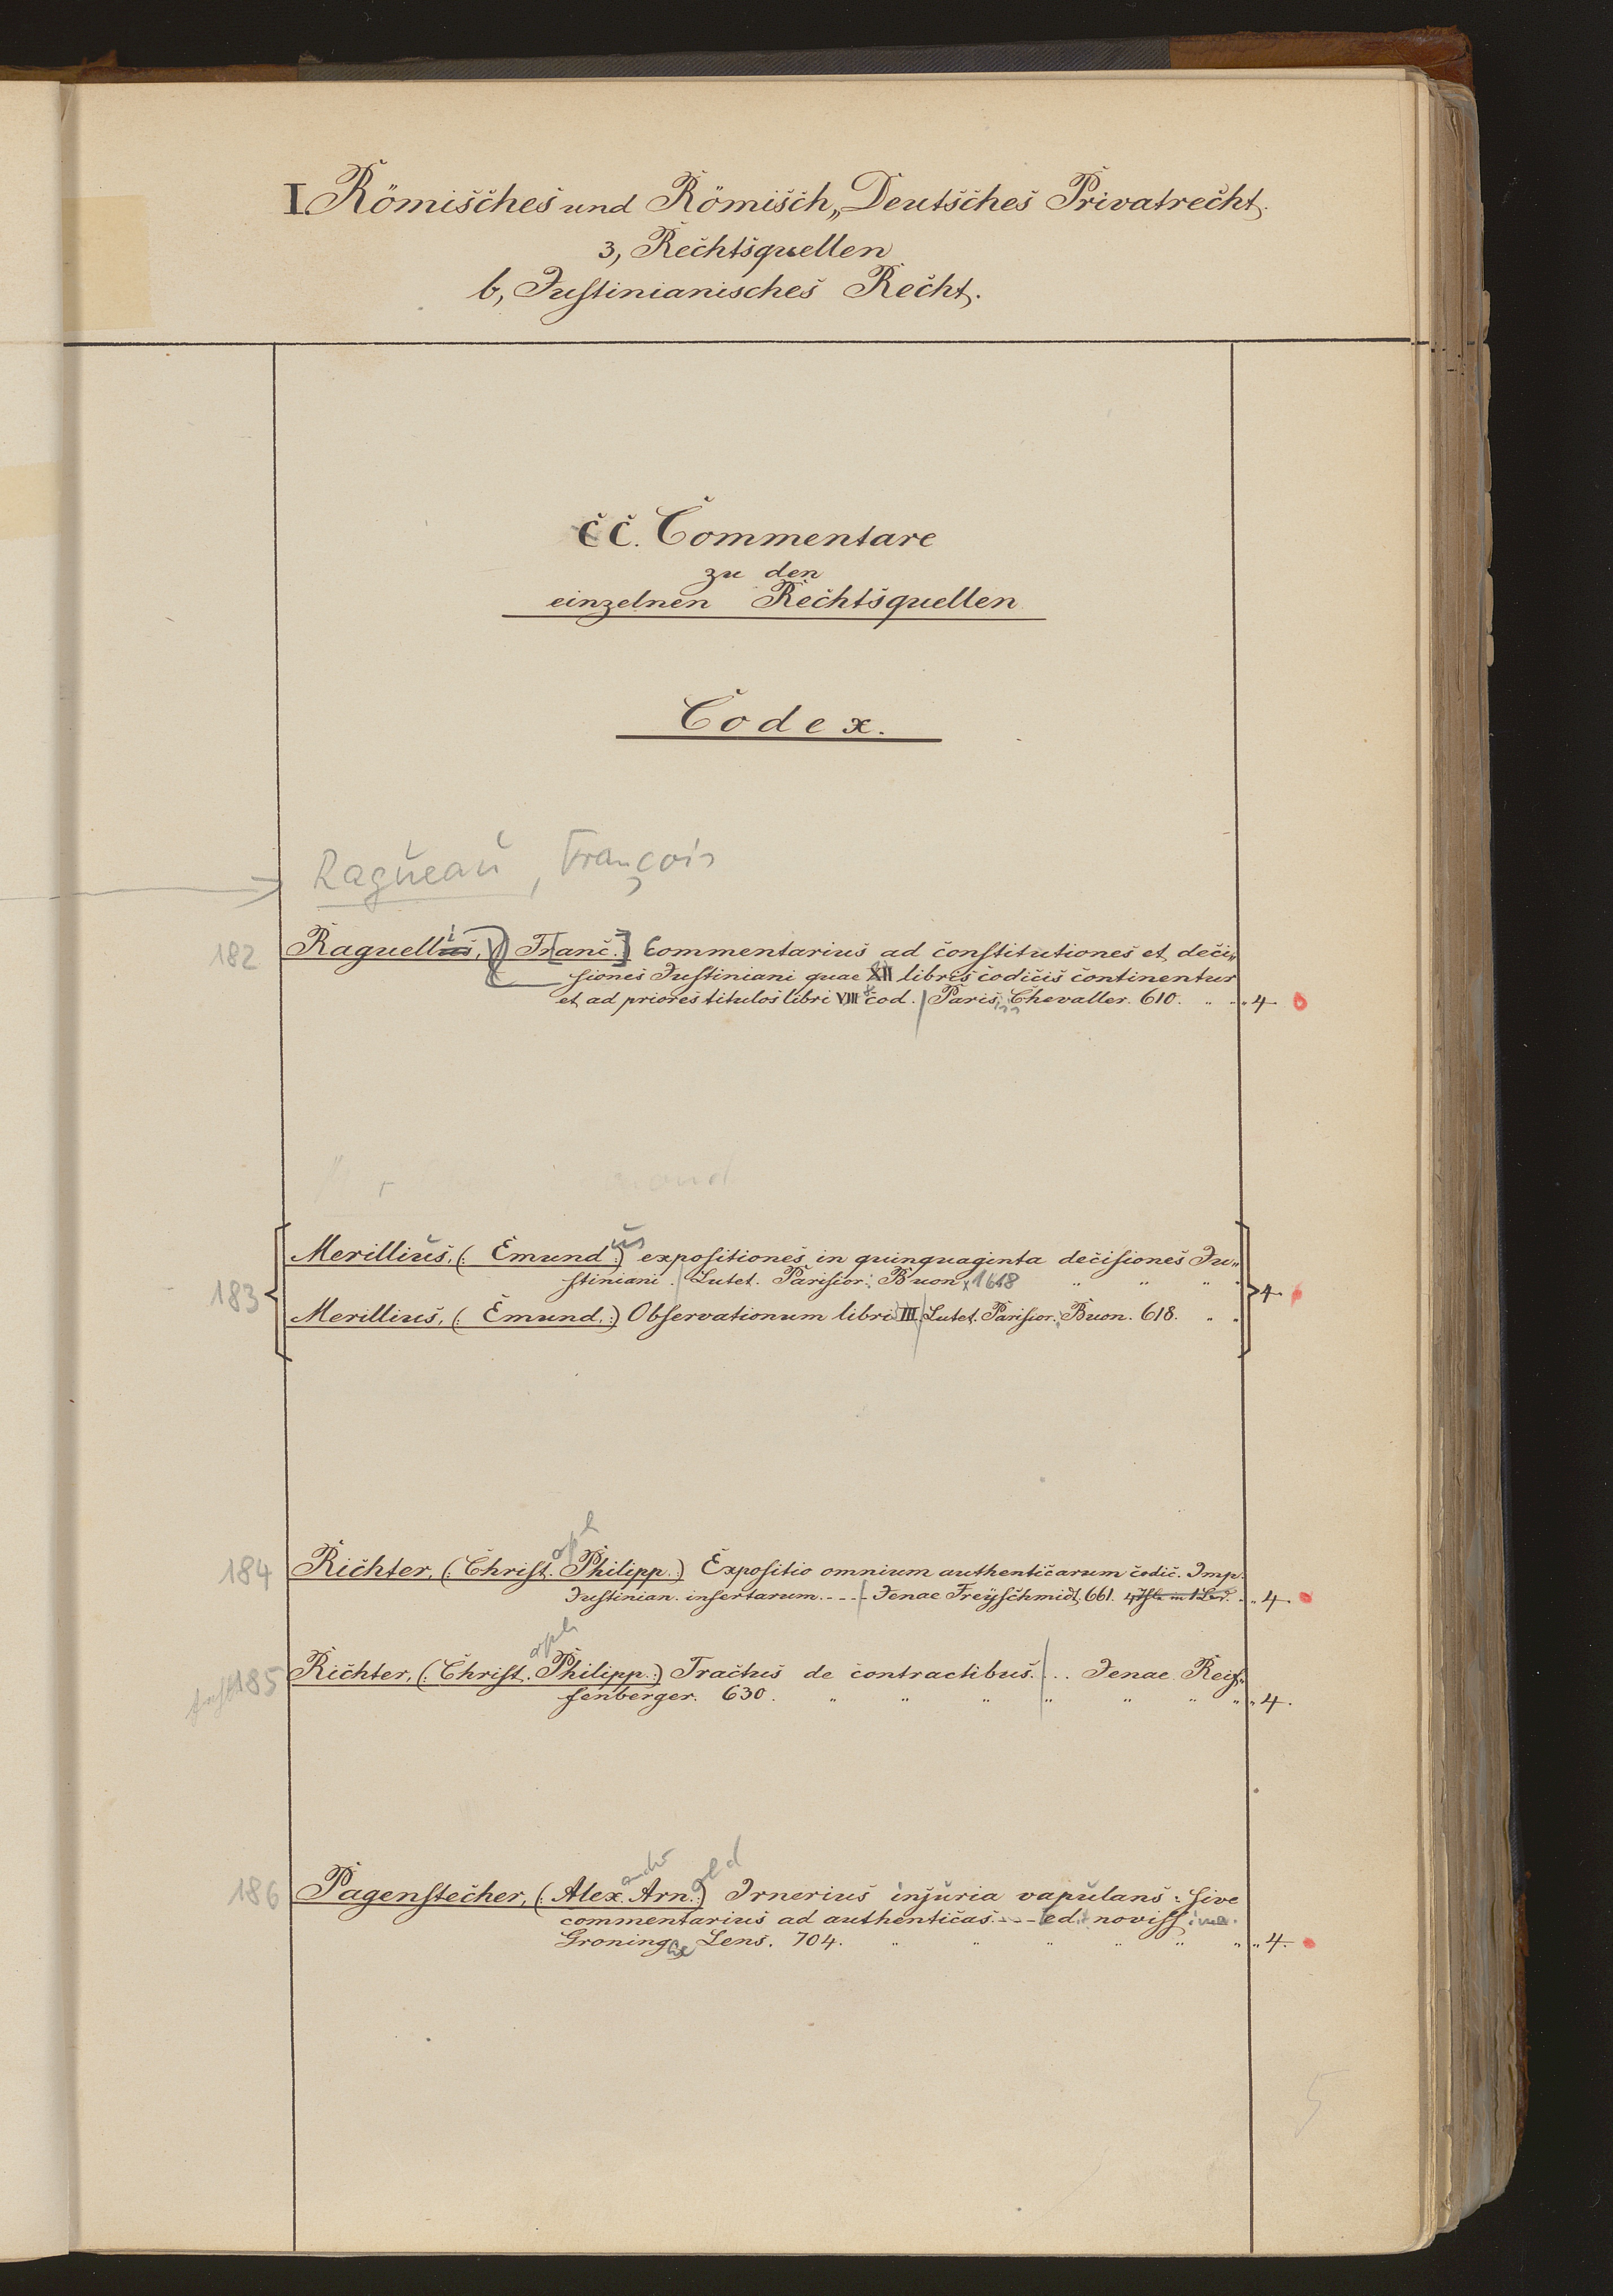 I. Römisches und Römisch„Deutsches Privatrecht.
3, Rechtsquellen
b, Justinianisches Recht.
cc. Commentare
zu den
einzelnen Rechtsquellen
Codex.
Ragueau, François
182 Raguellus, (: Franc.:) Commentarius ad constitutiones et deci„
siones Justiniani quae XII libris codicis continentur
et ad priores titulos libri VIII cod. Paris, Chevaller. 610. „ „ „ 4
183 Merillius, (: Emundus:) expositiones in quinquaginta decisiones Ju„
stiniani. Lutet. Parisior. Buon 1618 „ „ „ 4.
Merillius, (: Emund.:) Observationum libri III. Lutet. Parisior. Buon. 618. „ „
184 Richter, (: Christ. oph Philipp.:) Expositio omnium authenticarum codic. Imp.
Justinian. insertarum. - - - - Jenae Freyschmidt, 661. „ „ 4.
185 Richter, (: Christ. oph Philipp.:) Tractus de contractibus. . . Jenae Reis„
senberger. 630. „ „ „ „ „ „ „ „ 4.
186 Pagenstecher, (: Alex. ander Arn. old:) Irnerius injuria vapulans : sive
commentarius ad authenticas. - - - ed. noviss ima.
Groningae Lens. 704. „ „ „ „ „ „ „ 4.
5